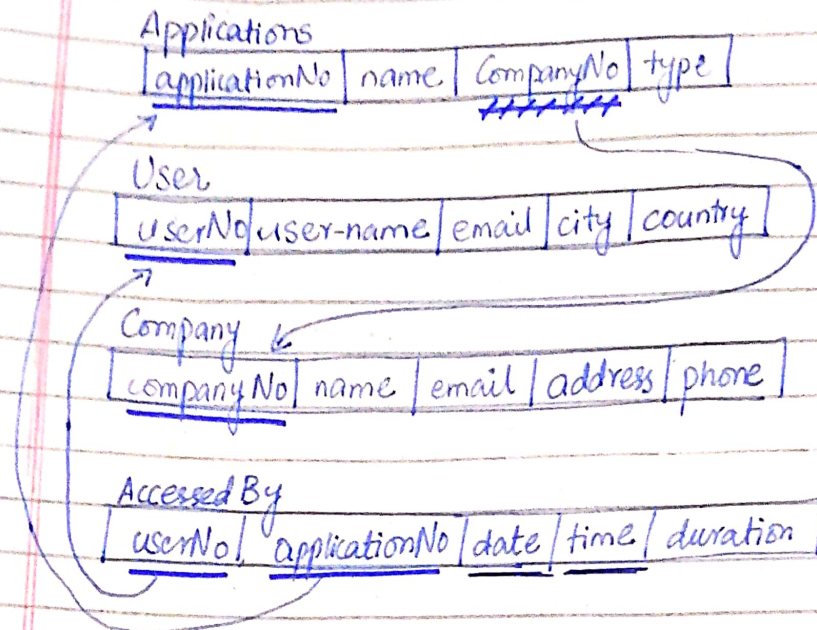 Applications
applicationNo name CompanyNo type
User
userNo user-name email city country
Company
companyNo name email address phone
Accessed By
userNo applicationNo date time duration